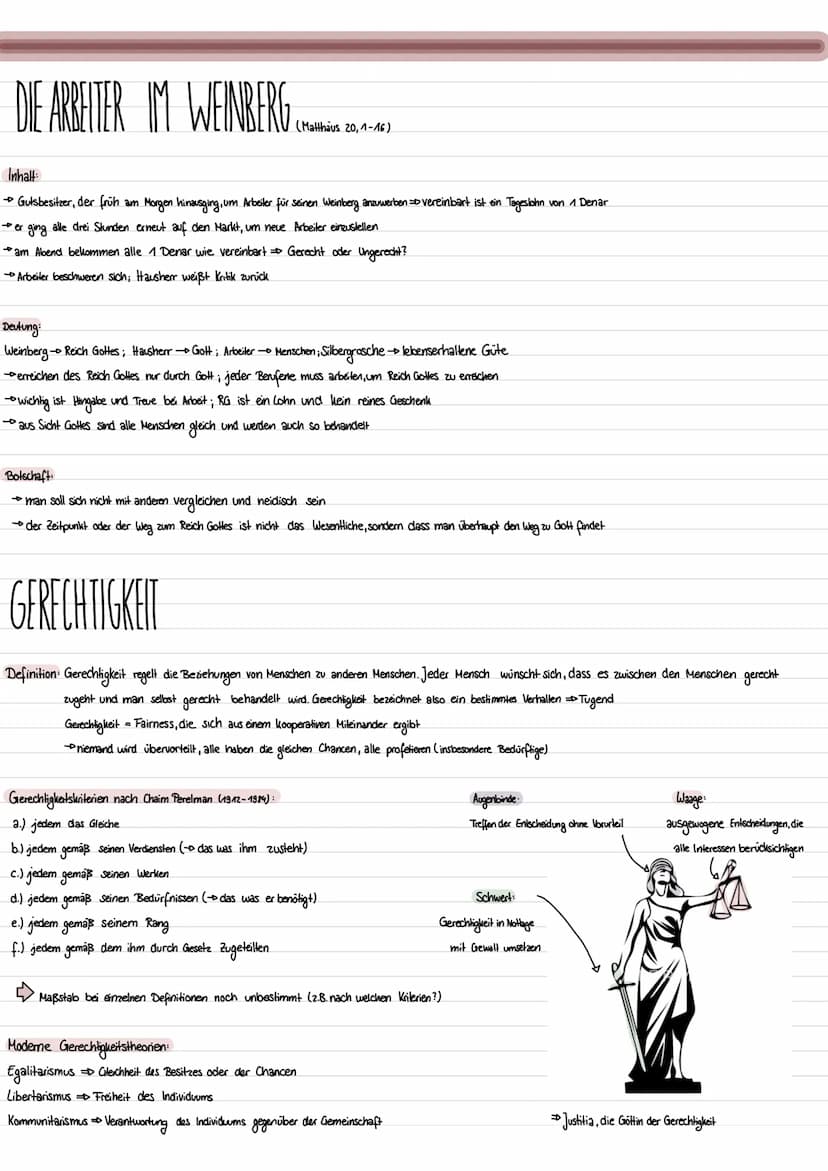 DIE ARBEITER IM WEINBERG (Matthäus 20,1-16)
Inhalt:
→ Gutsbesitzer, der früh am Morgen hinausging, um Arbeiter für seinen Weinberg anzuwerben ⇒ vereinbart ist ein Tageslohn von 1 Denar
→ er ging alle drei Stunden erneut auf den Markt, um neue Arbeiter einzustellen
→ am Abend bekommen alle 1 Denar wie vereinbart ⇒ Gerecht oder Ungerecht?
→ Arbeiter beschweren sich; Hausherr weißt Kritik zurück
Deutung:
Weinberg → Reich Gottes; Hausherr → Gott; Arbeiter → Menschen; Silbergrosche → lebenserhaltene Güte
→ erreichen des Reich Gottes nur durch Gott; jeder Berufene muss arbeiten, um Reich Gottes zu erreichen
→ wichtig ist Hingabe und Treue bei Arbeit; RG ist ein Lohn und kein reines Geschenk
→ aus Sicht Gottes sind alle Menschen gleich und werden auch so behandelt
Botschaft:
→ man soll sich nicht mit anderen vergleichen und neidisch sein
→ der Zeitpunkt oder der Weg zum Reich Gottes ist nicht das Wesentliche, sondern dass man überhaupt den Weg zu Gott findet
GERECHTIGKEIT
Definition: Gerechtigkeit regelt die Beziehungen von Menschen zu anderen Menschen. Jeder Mensch wünscht sich, dass es zwischen den Menschen gerecht
zugeht und man selbst gerecht behandelt wird. Gerechtigkeit bezeichnet also ein bestimmtes Verhalten ⇒ Tugend
Gerechtigkeit = Fairness, die sich aus einem kooperativen Miteinander ergibt
→ niemand wird übervorteilt, alle haben die gleichen Chancen, alle profetieren (insbesondere Bedürftige)
Gerechtigkeitskriterien nach Chaim Perelman (1912-1984):
a.) jedem das Gleiche
b.) jedem gemäß seinen Verdiensten (→ das was ihm zusteht)
c.) jedem gemäß seinen Werken
d.) jedem gemäß seinen Bedürfnissen (→ das was er benötigt)
e.) jedem gemäß seinem Rang
f.) jedem gemäß dem ihm durch Gesetz Zugeteilten
⇨ Maßstab bei einzelnen Definitionen noch unbestimmt (z.B. nach welchen Kriterien?)
Moderne Gerechtigkeitstheorien:
Egalitarismus ⇒ Gleichheit des Besitzes oder der Chancen
Libertarismus ⇒ Freiheit des Individuums
Kommunitarismus ⇒ Verantwortung des Individuums gegenüber der Gemeinschaft
Augenbinde:
Treffen der Entscheidung ohne Vorurteil
Waage:
ausgewogene Entscheidungen, die
alle Interessen berücksichtigen
Schwert:
Gerechtigkeit in Notlage
mit Gewalt umsetzen
⇒ Justitia, die Göttin der Gerechtigkeit